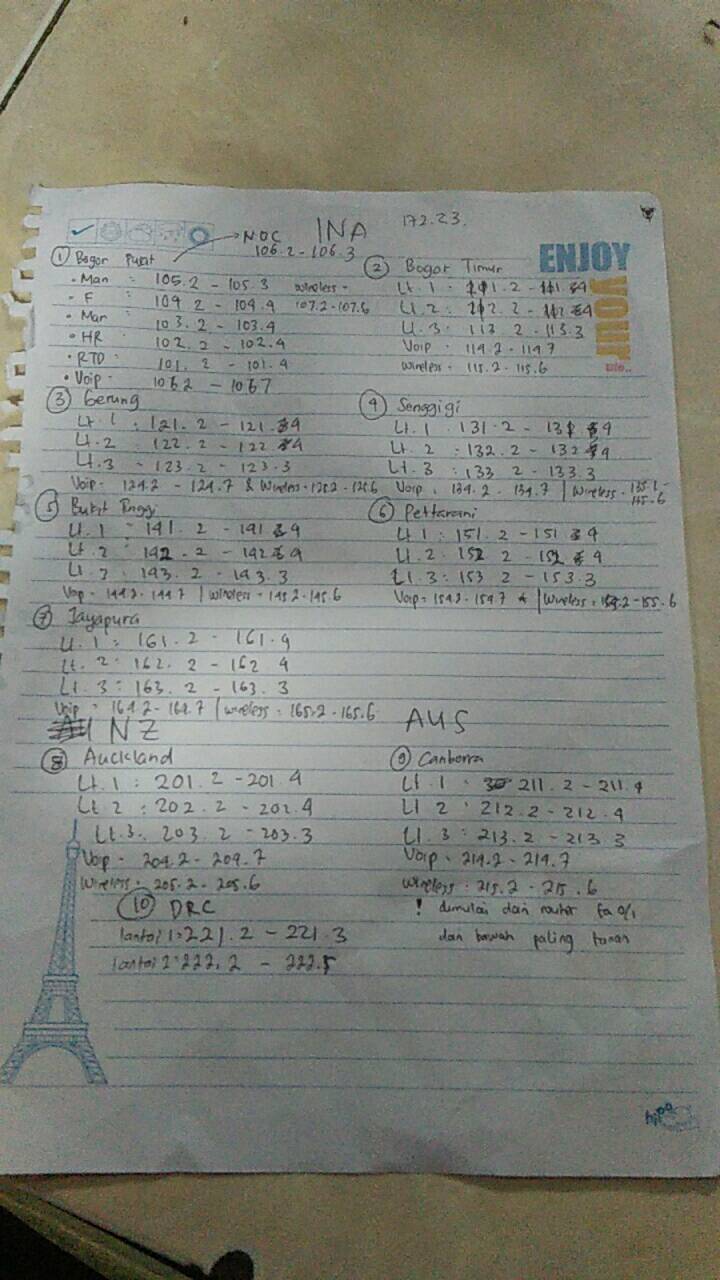 INA 172.23.
NOC
106.2 - 106.3
ENJOY
YOUR
① Bogor Pusat
• Man : 105.2 - 105.3 wireless =
• F : 104 2 - 104.4 107.2-107.6
• Mar : 103.2 - 103.4
• HR : 102.2 - 102.4
• RTD : 101.2 - 101.4
• Voip : 106 2 - 106 7
② Bogor Timur
Lt. 1 : 111.2 - 111. 4
Lt. 2 : 112.2 - 112 4
Lt. 3 : 113.2 - 113.3
Voip : 114.2 - 114.7
wireless = 115.2 - 115.6
③ Gerung
Lt. 1 : 121.2 - 121. 4
Lt. 2 : 122.2 - 122. 4
Lt. 3 - 123.2 - 123.3
Voip = 124.2 - 124.7 & Wireless = 125.2 - 125.6
④ Senggigi
Lt. 1 : 131.2 - 131 4
Lt. 2 : 132.2 - 132 4
Lt. 3 : 133 2 - 133.3
Voip : 134.2 - 134.7 | Wireless = 135.6
⑤ Bukit Tinggi
Lt. 1 = 141.2 - 141 4
Lt. 2 = 142.2 - 142 4
Lt. 3 = 143.2 - 143.3
Voip = 144.2 - 144.7 | wireless = 145.2 - 145.6
⑥ Pettarani
Lt 1 : 151.2 - 151 4
Lt. 2 : 152 2 - 152 4
Lt. 3 : 153 2 - 153.3
Voip = 154.2 - 154.7 | Wireless = 155.2 - 155.6
⑦ Jayapura
Lt. 1 = 161.2 - 161.4
Lt. 2 = 162.2 - 162 4
Lt. 3 = 163.2 - 163.3
Voip = 164.2 - 164.7 | wireless = 165.2 - 165.6
NZ
⑧ Auckland
Lt. 1 : 201.2 - 201.4
Lt 2 : 202.2 - 202.4
Lt. 3 : 203.2 - 203.3
Voip = 204.2 - 204.7
Wireless = 205.2 - 205.6
AUS
⑨ Canberra
Lt. 1 : 211.2 - 211.4
Lt 2 : 212.2 - 212.4
Lt. 3 : 213.2 - 213 3
Voip = 214.2 - 214.7
Wireless : 215.2 - 215.6
! dimulai dari router fa 0/1
dan bawah paling
⑩ DRC
lantai 1 = 221.2 - 221.3
lantai 2 : 222.2 - 222.5